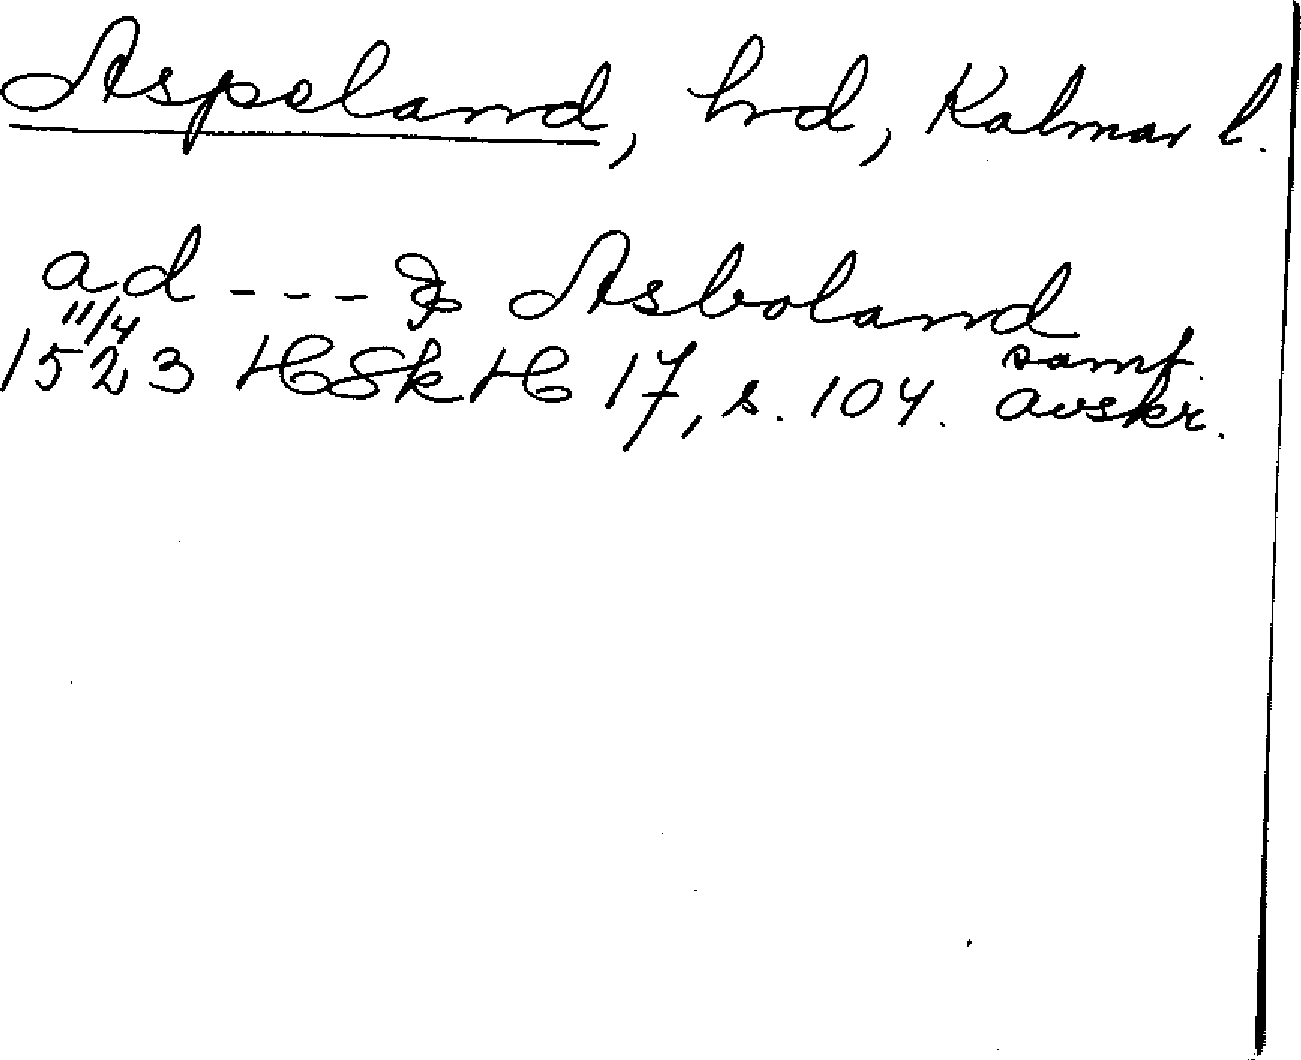 Aspeland, hd, Kalmar l.
ad --- & Asboland
11/4
1523 HSkH 17, s. 104. samt.
avskr.